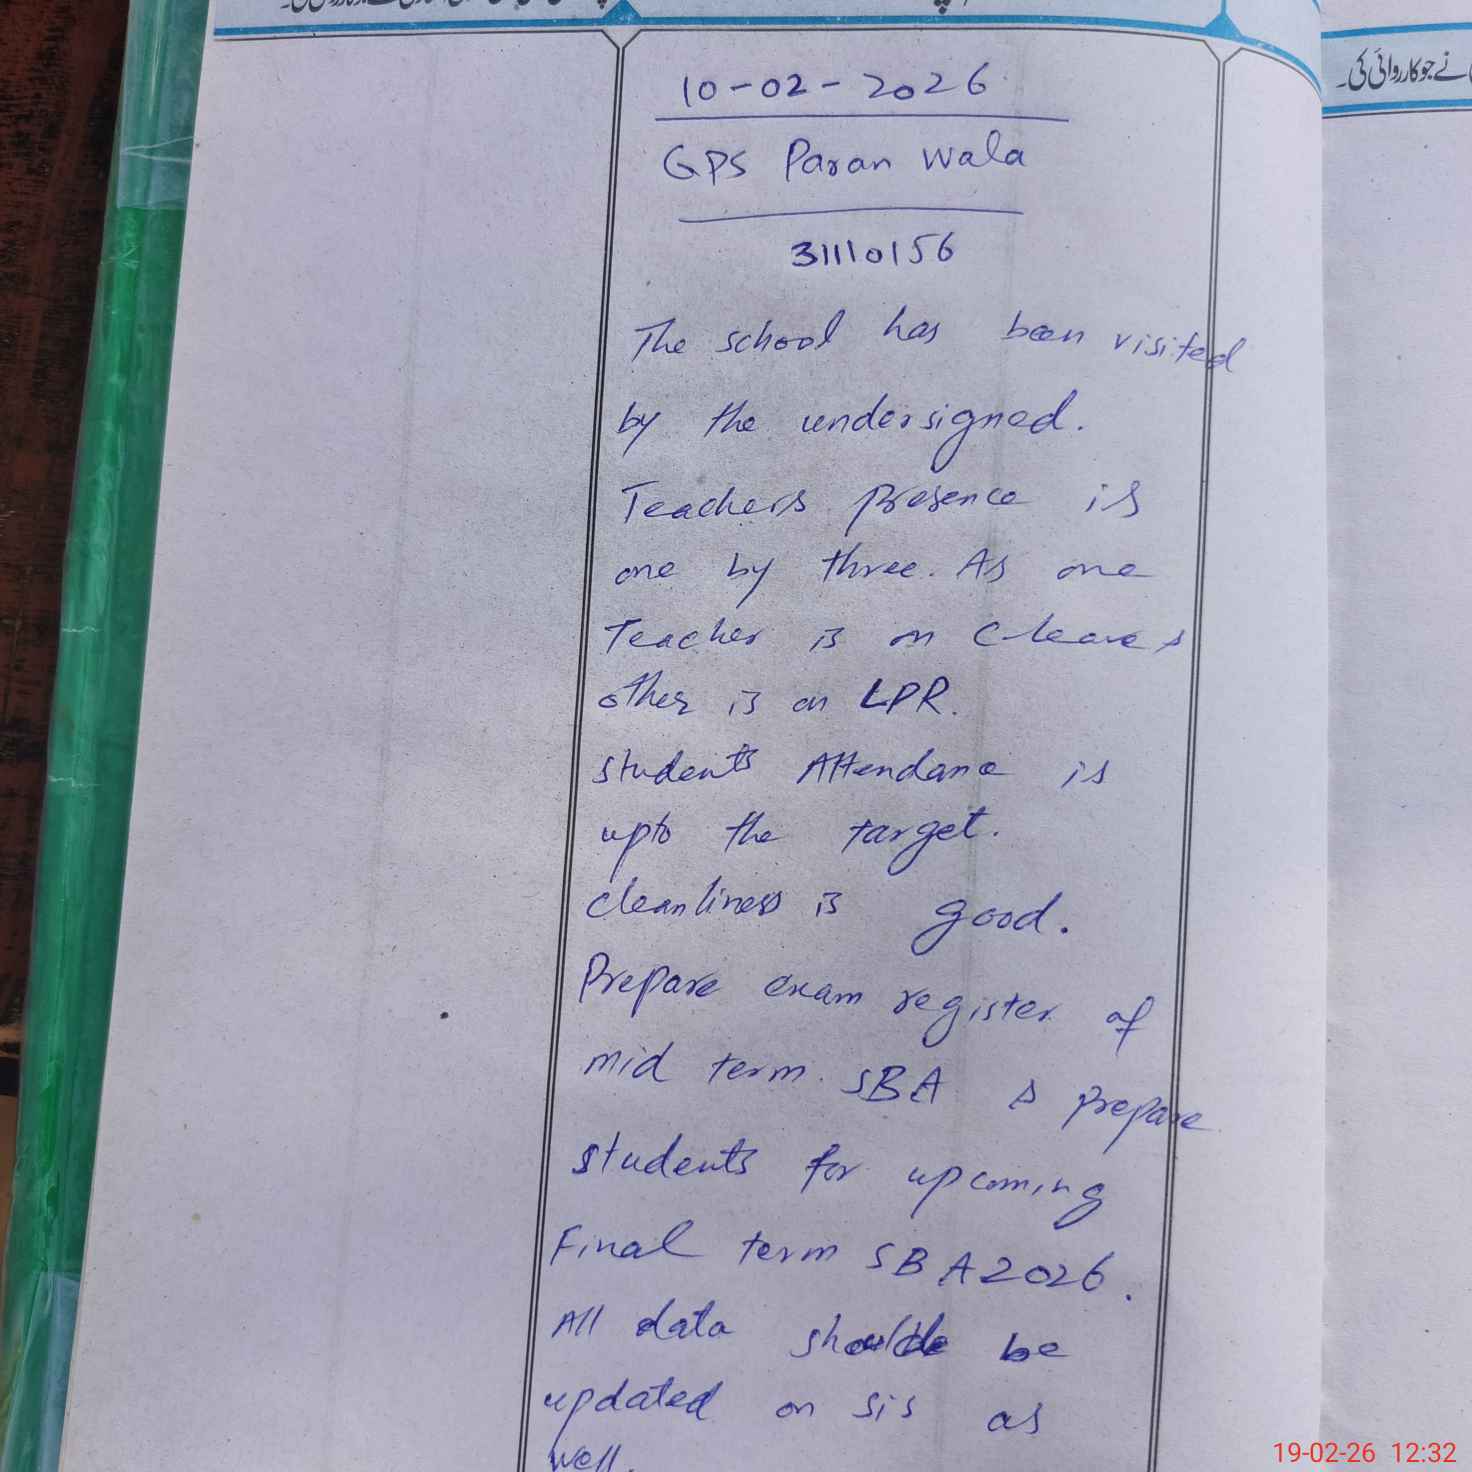 نے جو کارروائی کی۔
10-02-2026
GPS Paran Wala
31110156
The school has been visited
by the undersigned.
Teachers presence is
one by three. As one
Teacher is on C-leave &
other is on LPR.
students Attendance is
upto the target.
cleanliness is good.
Prepare exam register of
mid term SBA & prepare
students for upcoming
Final term SBA 2026.
All data should be
updated on sis as
well.
19-02-26 12:32